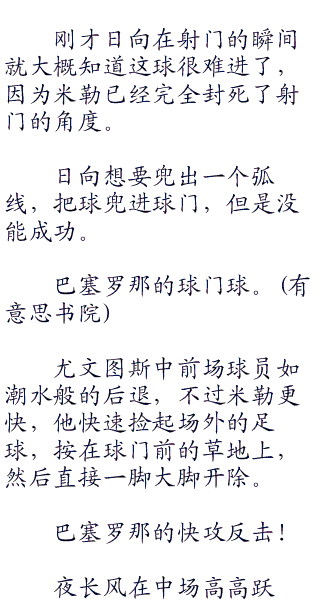 刚才日向在射门的瞬间
就大概知道这球很难进了，
因为米勒已经完全封死了射
门的角度。
日向想要兜出一个弧
线，把球兜进球门，但是没
能成功。
巴塞罗那的球门球。(有
意思书院)
尤文图斯中前场球员如
潮水般的后退，不过米勒更
快，他快速捡起场外的足
球，按在球门前的草地上，
然后直接一脚大脚开除。
巴塞罗那的快攻反击！
夜长风在中场高高跃